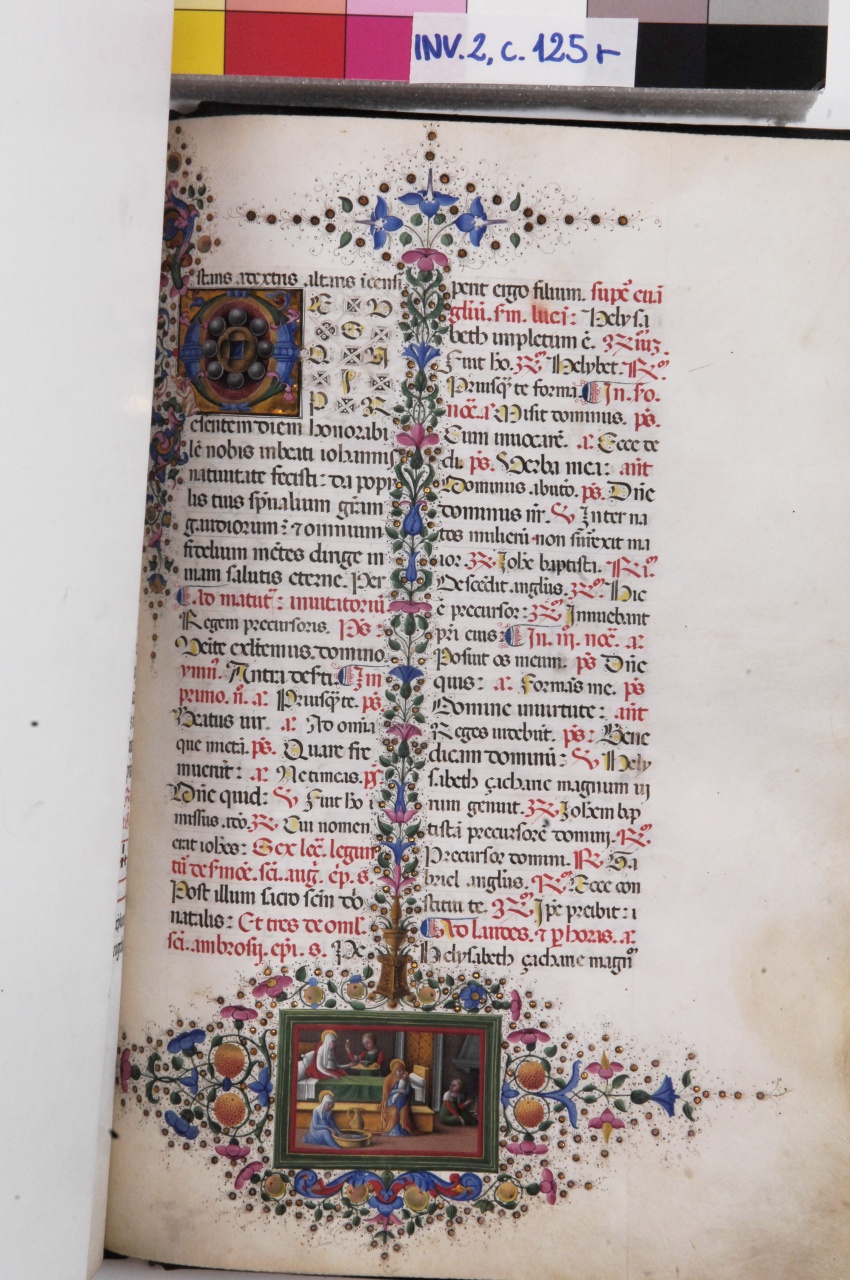 INV. 2, c. 125 r
stans a dextris altaris icensi
D E V
S
Q V I
P R
esentem diem honorabi
lē nobis in beati iohannis
natiuitate fecisti: da popu
lis tuis spūalium grām
gaudiorum: ⁊ omnium
fidelium mētes dirige in
uiam salutis eterne. Per
Ad matut: inuitatoriū
Regem precursoris. Ps:
Venite exltemus domino
ymn. Antra deserti. In
primo. n. a. Priusq̄ te. ps.
Beatus uir. a. Ad omia
que mictā. ps. Quare fre
muerūt: a. Ne timeas. ps.
Dn̄e quid: ℣ Fuit hō
missus a dō. ℟ Cui nomen
erat ioh̄es: Sex lec̄. legun
Post illum sacrosc̄m dō
natalis: Et tres de oml̄.
sc̄i. ambrosij. ep̄i. s. De
pent ergo filium. supē euā
gliū. s̄m. lucā: Helysa
beth impletum ē.
Fuit hō. ℟ Helysabet. ℟
Priusq̄ te forma. In. so.
noc̄. a. Misit dominus. ps.
Cum inuocarē. a. Ecce de
di. ps. Verba mea: ant
Dominus ab uto. ps. Dn̄e
dominus nr̄. ℣ Inter na
tos mulierū non surrexit ma
ior ℟ Joh̄e baptista. ℟
Descēdit anglus. ℟ Hic
ē precursor: ℟ Innuebant
pr̄i eius: In. iij. noc̄. a:
Posuit os meum. ps Dn̄e
quis: a. Formās me. ps
Domine in uirtute: ant
Reges uidebūt. ps: Bene
dicam dominū: ℣ Hely
sabeth çacharie magnum ui
rum genuit. ℟ Joh̄em bap
tistā precursorē domini. ℟
Precursor domini. ℟ Ga
briel anglus. ℟ Ecce con
stitui te. ℟ Ip̄e preibit: i
Ad laudes. ⁊ p horas. a.
Helysabeth çacharie magn̄